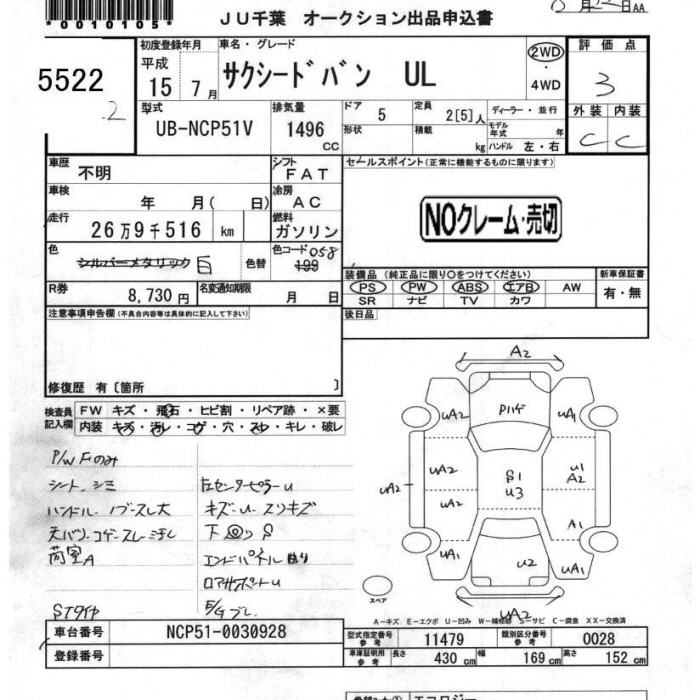 *0010105*
JU千葉 オークション出品申込書
日AA
5522
2
初度登録年月
平成
15 7月
車名・グレード
サクシードバン UL
2WD
・
4WD
評価点
3
外装 内装
C C
型式
UB-NCP51V
排気量
1496
CC
ドア 5
形状
定員 2[5]人
積載 kg
ディーラー・並行
モデル年式 年
ハンドル 左・右
車歴
不明
シフト
FAT
車検
年 月( 日)
冷房
AC
走行
26万9千516 km
燃料
ガソリン
色
シルバーメタリック 白
色替
色コード 058
199
R券
8,730円
名変通知期限
月 日
セールスポイント(正常に機能するものに限ります)
NOクレーム・売切
装備品(純正品に限り〇をつけてください)
PS PW ABS エアB AW
SR ナビ TV カワ
新車保証書
有・無
後日品
注意事項申告欄(不具合内容等は具体的に記入して下さい)
修復歴 有〔箇所 〕
検査員
記入欄
FW キズ・飛石・ヒビ割・リペア跡・×要
内装 キズ・汚レ・コゲ・穴・スレ・キレ・破レ
P/W Fのみ
シート、シミ
荷室A
キズ-U スリキズ
エンドパネル
A2
UA2
UA1
UA2
S1
U3
U1
A2
UA2
UA2
A1
UA1
U2
UA1
UA2
スペア
A-キズ E-エクボ U-凹み W-補修跡 S-サビ C-腐食 XX-交換済
車台番号 NCP51-0030928
登録番号
型式指定番号
参考
11479
類別区分番号
参考
0028
車庫証明用
参考
長さ 430 cm 幅 169 cm 高さ 152 cm
エコロジー